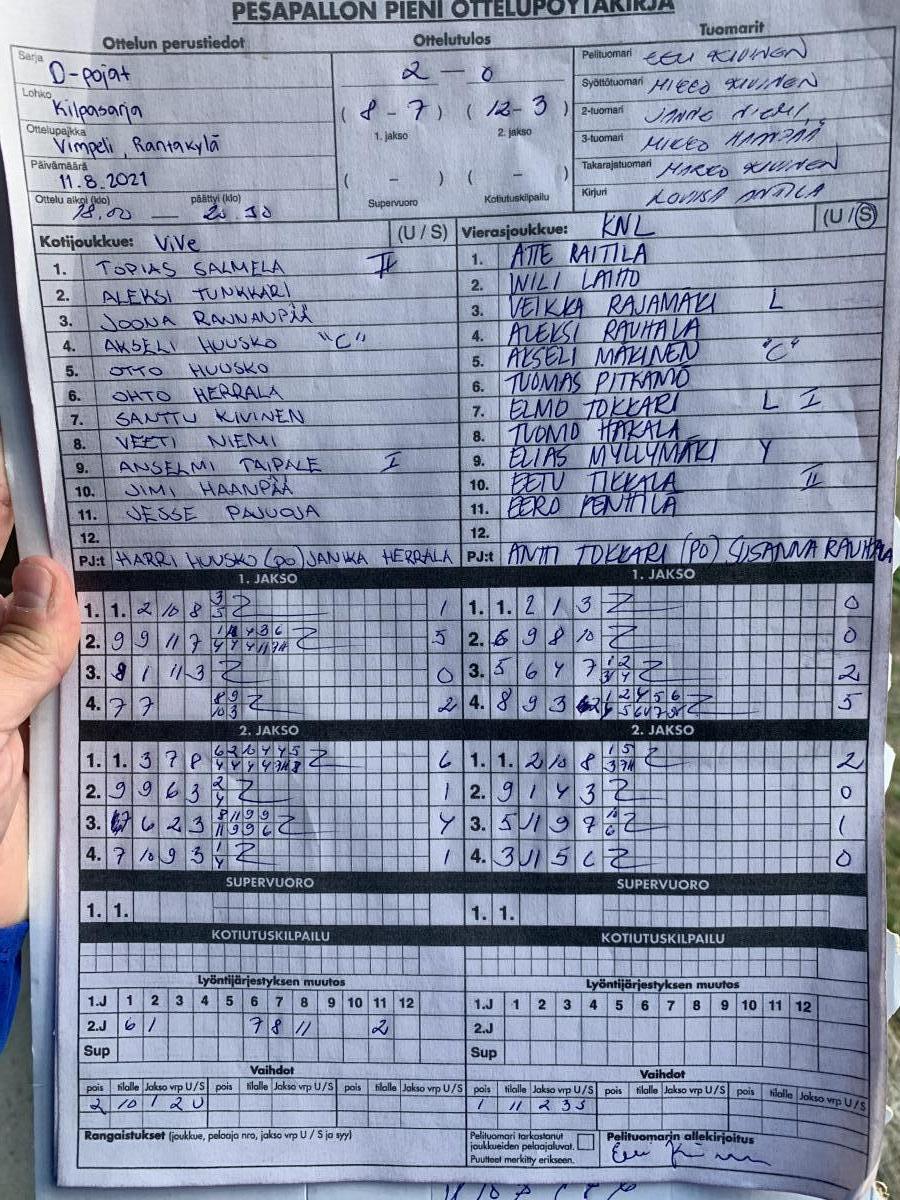 PESÄPALLON PIENI OTTELUPÖYTÄKIRJA
Ottelun perustiedot
Ottelutulos
Tuomarit
Sarja
D-pojat
Lohko
Kilpasarja
Ottelupaikka
Vimpeli, Rantakylä
Päivämäärä
11.8.2021
Ottelu alkoi (klo) päättyi (klo)
18.00 —
2 — 0
( 8 - 7 ) ( 12 - 3 )
1. jakso 2. jakso
( - ) ( - )
Supervuoro Kotiutuskilpailu
Pelituomari EELI KIVINEN
Syöttötuomari MIKKO KIVINEN
2-tuomari JANNE NIEMI
3-tuomari MIKKO HAANPÄÄ
Takarajatuomari MARKO KIVINEN
Kirjuri LOVIISA ANTILA
Kotijoukkue: ViVe (U / S)
1. TOPIAS SALMELA II
2. ALEKSI TUNKKARI
3. JOONA RANNANPÄÄ
4. AKSELI HUUSKO "C"
5. OTTO HUUSKO
6. OHTO HERRALA
7. SANTTU KIVINEN
8. VEETI NIEMI
9. ANSELMI TAIPALE I
10. JIMI HAANPÄÄ
11. JESSE PAJUOJA
12.
PJ:t HARRI HUUSKO (PO) JANIKA HERRALA
Vierasjoukkue: KNL (U / S)
1. ATTE RAITILA
2. WILI LAIHO
3. VEIKKA RAJAMÄKI L
4. ALEKSI RAUHALA
5. AKSELI MÄKINEN "C"
6. TUOMAS PITKÄMÖ
7. ELMO TOKKARI L I
8. TUOMO HAKALA
9. ELIAS MYLLYMÄKI Y
10. EETU TIKKALA II
11. EERO PENTTILÄ
12.
PJ:t ANTTI TOKKARI (PO) SUSANNA RAUHALA
1. JAKSO
1. 1. 2 10 8 3 5 1
2. 9 9 11 7 5
3. 8 1 11 3 0
4. 7 7 8 9 10 3 2
1. JAKSO
1. 1. 2 1 3 0
2. 6 9 8 10 0
3. 5 6 4 7 2
4. 8 9 3 5
2. JAKSO
1. 1. 3 7 8 6
2. 9 9 6 3 2 4 1
3. 6 2 3 8 11 9 9 11 9 9 6 4
4. 7 10 9 3 1 4 1
2. JAKSO
1. 1. 2 10 8 2
2. 9 1 4 3 0
3. 5 11 9 7 10 6 1
4. 3 11 5 6 0
SUPERVUORO
1. 1.
SUPERVUORO
1. 1.
KOTIUTUSKILPAILU
KOTIUTUSKILPAILU
Lyöntijärjestyksen muutos
1.J 1 2 3 4 5 6 7 8 9 10 11 12
2.J 6 1 7 8 11 2
Sup
Lyöntijärjestyksen muutos
1.J 1 2 3 4 5 6 7 8 9 10 11 12
2.J
Sup
Vaihdot
pois tilalle Jakso vrp U/S pois tilalle Jakso vrp U/S pois tilalle Jakso vrp U/S
2 10 1 2 U
Vaihdot
pois tilalle Jakso vrp U/S pois tilalle Jakso vrp U/S pois tilalle Jakso vrp U/S
1 11 2 3 S
Rangaistukset (joukkue, pelaaja nro, jakso vrp U / S ja syy)
Pelituomari tarkastanut
joukkueiden pelaajaluvat.
Puutteet merkitty erikseen.
Pelituomarin allekirjoitus